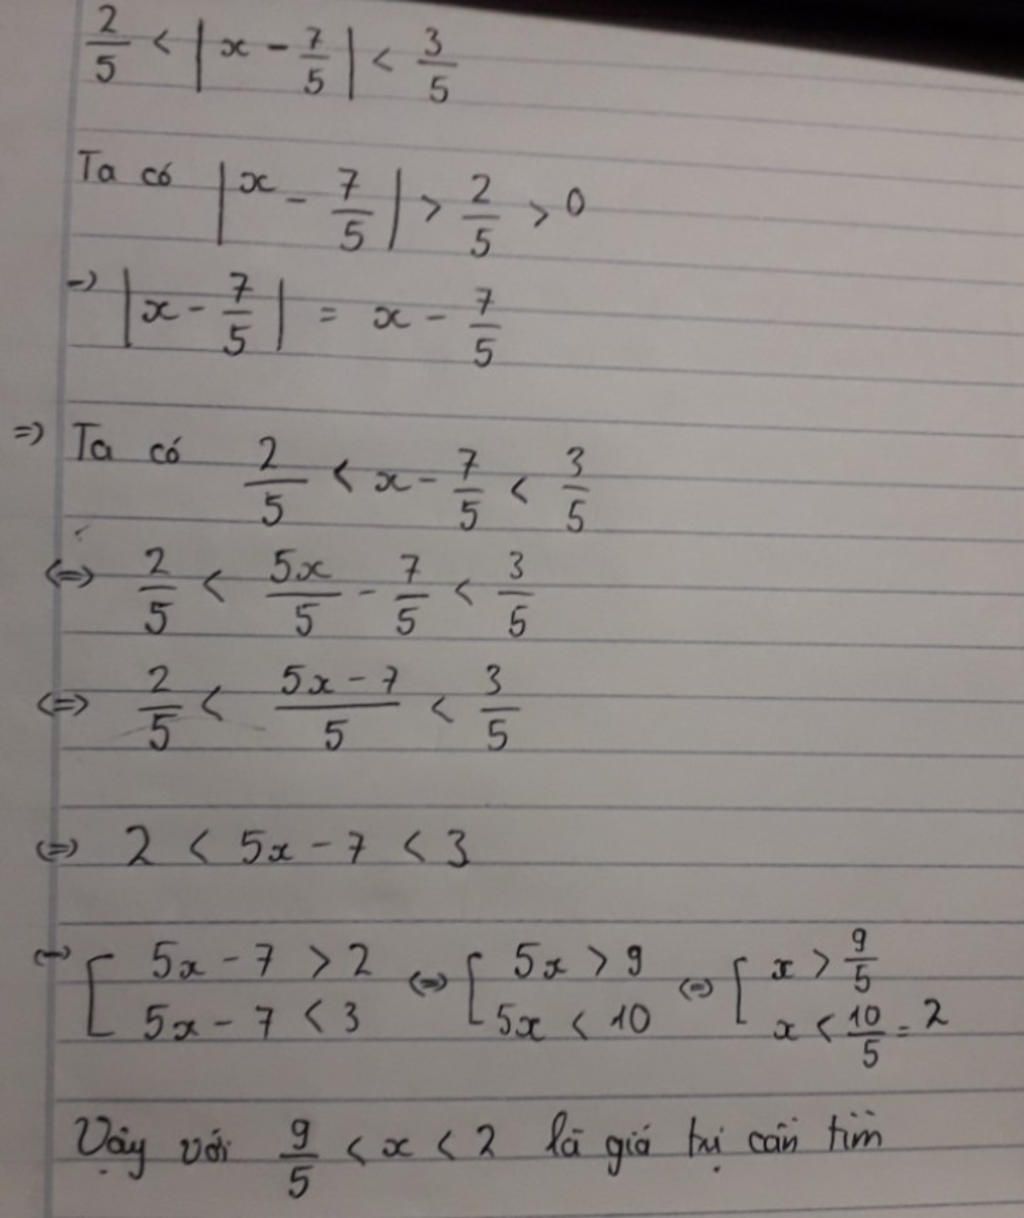 2/5 < |x - 7/5| < 3/5
Ta có |x - 7/5| > 2/5 > 0
-) |x - 7/5| = x - 7/5
=) Ta có 2/5 < x - 7/5 < 3/5
(=) 2/5 < 5x/5 - 7/5 < 3/5
(=) 2/5 < (5x - 7)/5 < 3/5
(=) 2 < 5x - 7 < 3
(=) [ 5x - 7 > 2 (=) [ 5x > 9 (=) [ x > 9/5
5x - 7 < 3 5x < 10 x < 10/5 = 2
Vậy với 9/5 < x < 2 là giá trị cần tìm